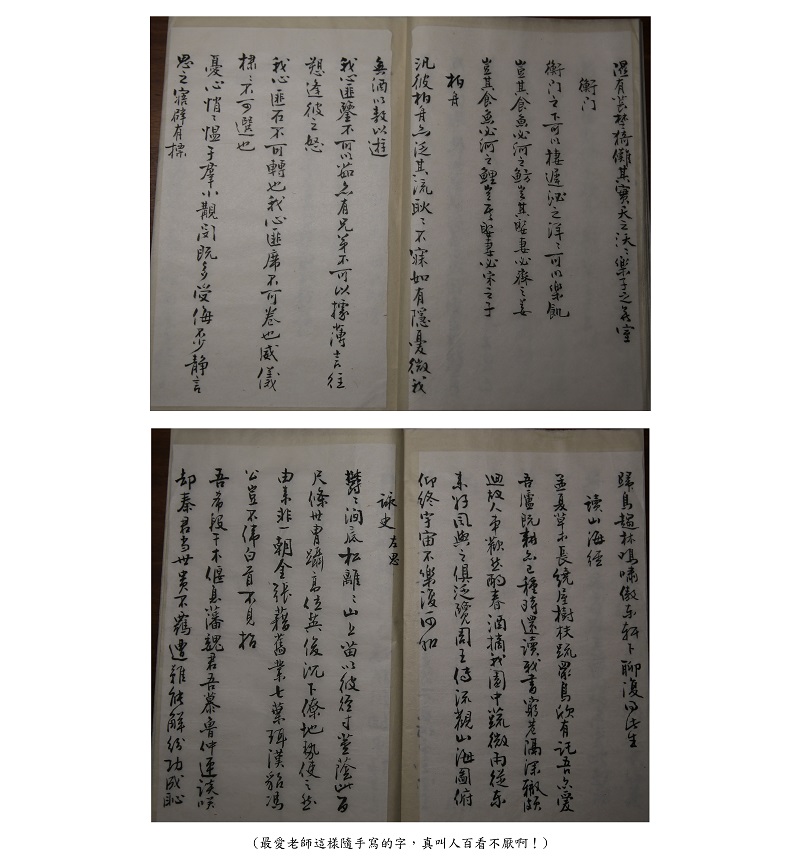 隰有萇楚猗儺其實夭之沃〻樂子之無室
衡門
衡門之下可以棲遲泌之洋〻可以樂飢
豈其食魚必河之魴豈其娶妻必齊之姜
豈其食魚必河之鯉豈其娶妻必宋之子
柏舟
汎彼柏舟亦泛其流耿〻不寐如有隱憂微我
無酒以敖以遊
我心匪鑒不可以茹亦有兄弟不可以據薄言往
愬逢彼之怒
我心匪石不可轉也我心匪席不可卷也威儀
棣〻不可選也
憂心悄〻慍于羣小覯閔既多受侮不少靜言
思之寤辟有摽
歸鳥趨林鳴嘯傲東軒下聊復得此生
讀山海經
孟夏草木長繞屋樹扶疏眾鳥欣有託吾亦愛
吾廬既耕亦已種時還讀我書窮巷隔深轍頗
迴故人車歡然酌春酒摘我園中蔬微雨從東
來好風與之俱泛覽周王傳流觀山海圖俯
仰終宇宙不樂復何如
詠史 左思
鬱〻澗底松離〻山上苗以彼徑寸莖蔭此百
尺條世胄躡高位英俊沉下僚地勢使之然
由來非一朝金張藉舊業七葉珥漢貂馮
公豈不偉白首不見招
吾希段干木偃息藩魏君吾慕魯仲連談笑
却秦君當世貴不羈遭難能解紛功成恥
（最愛老師這樣隨手寫的字，真叫人百看不厭啊！）